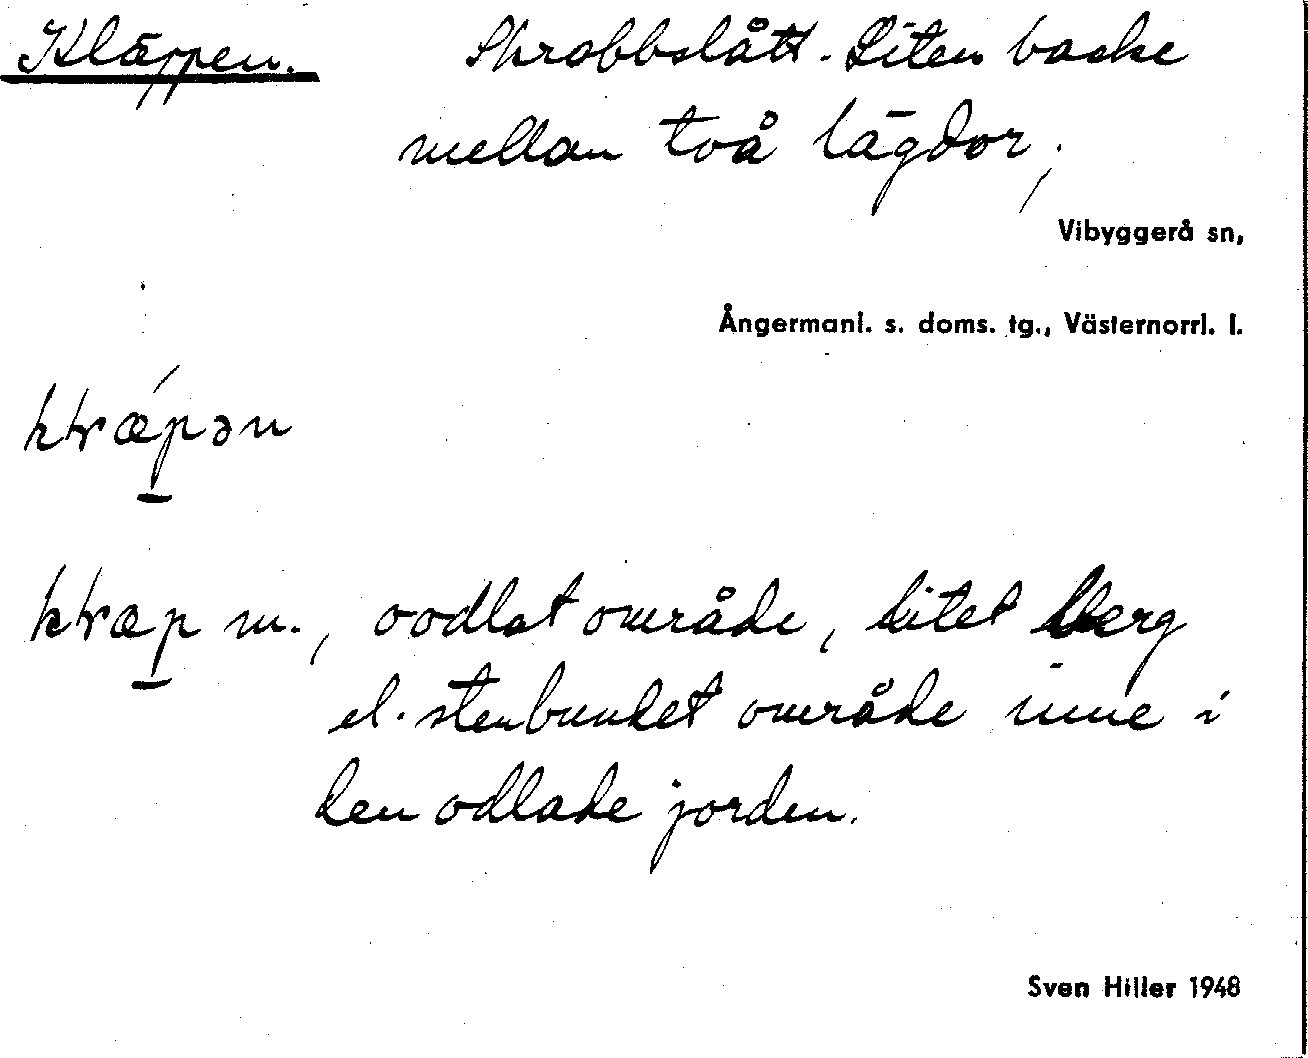 Kläppen. Skrobbslått. Liten backe
mellan två lägdor,
Vibyggerå sn,
Ångermanl. s. doms. tg., Västernorrl. l.
oodlat område, litet berg
el. stenbundet område inne i
den odlade jorden.
Sven Hiller 1948